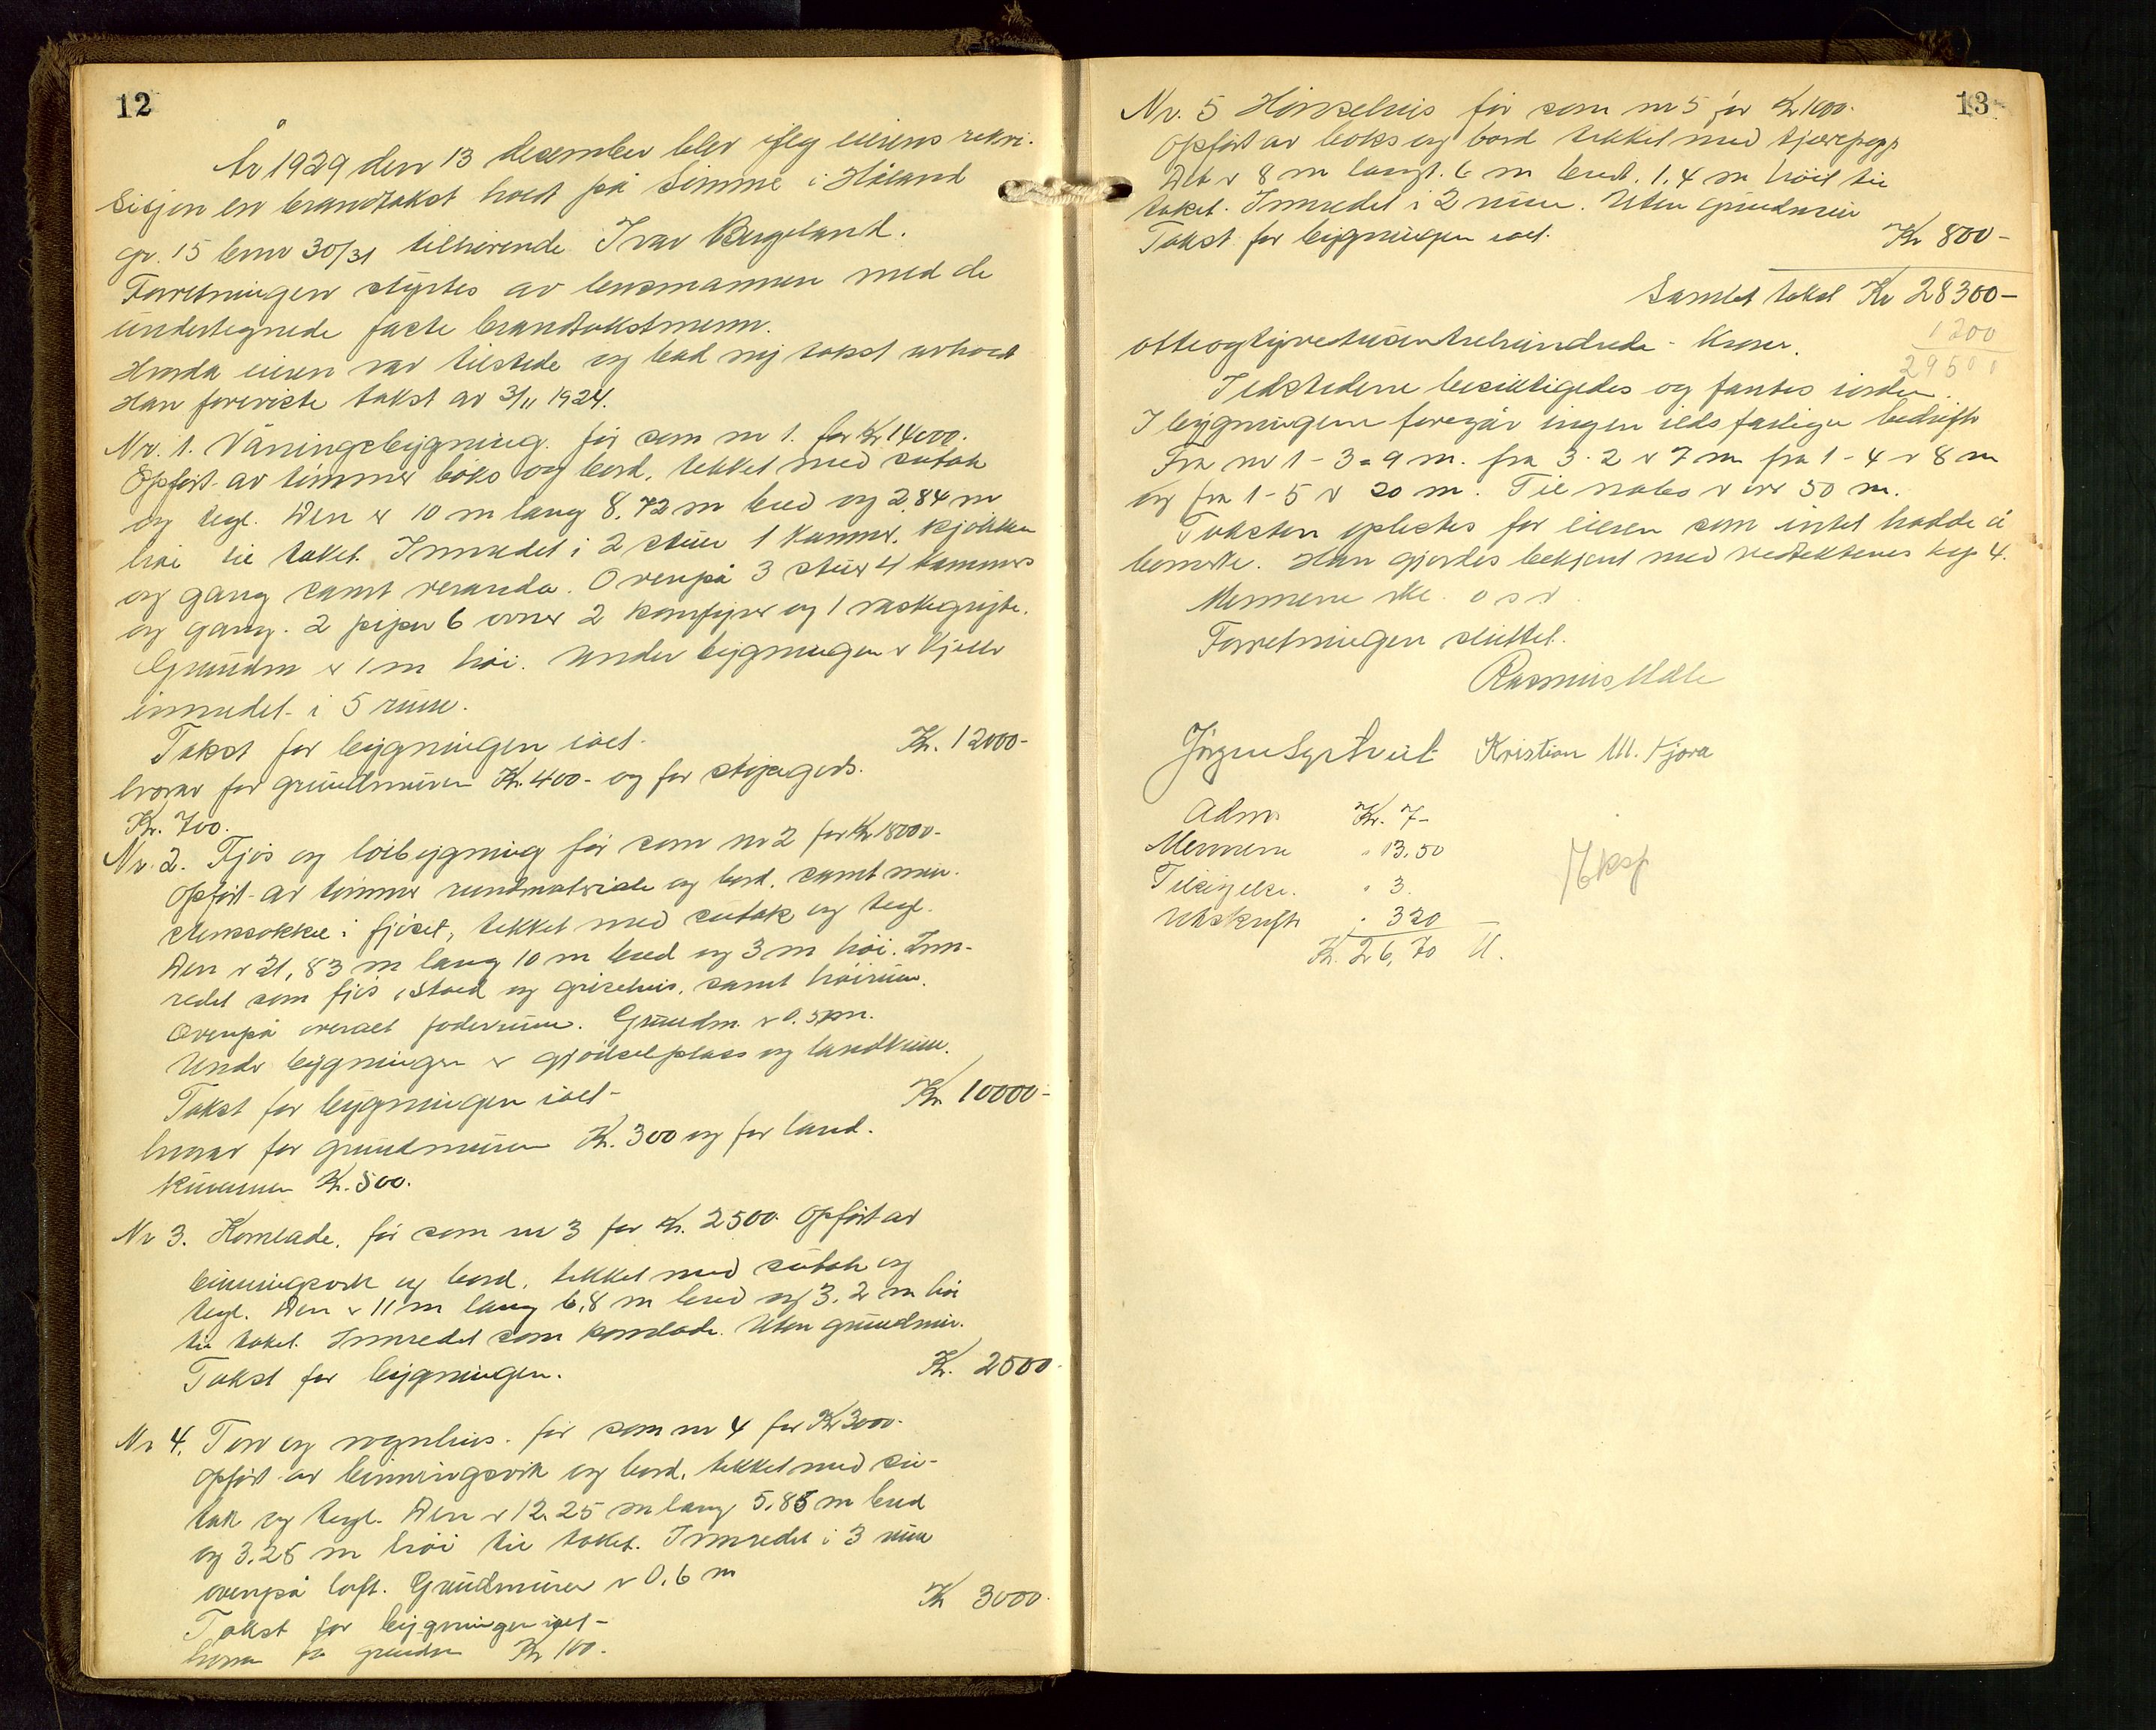 12
År 1929 den 13 desember blev ifølg eierens rekvi-
sisjon en brandtakst holdt på Sømme i Håland
gr. 15 bnr 30/31 tilhørende Ivar Bergeland.
Forretningen styrtes av lensmannen med de
undertegnede faste brandtakstmenn.
Hvorda eieren var tilstede og bad ny takst avholdt
Han foreviste takst av 3/11 1924.
Nr. 1. Våningsbygning. før som nr 1. for Kr 14000.
Opført av tømmer boks og bord, tekket med sutak
og tegl. Den er 10 m lang 8,72 m bred og 2,84 m
høi til taket. Innredet i 2 stuer 1 kammer, kjøkken
og gang samt veranda. Ovenpå 3 stuer 4 kammers
og gang. 2 piper 6 ovner 2 komfyrer og 1 vaskegryte.
Grundm er 1 m høi. Under bygningen er kjeller
innredet i 5 rum.
Takst for bygningen ialt. Kr. 12000-
hvorav for grundmuren Kr. 400- og for
Kr. 700.
Nr. 2. Fjøs og løibygning før som nr 2 for Kr 18000-
Opført av tømmer rundmateriale og bord, samt mur.
stensokkel i fjøset, tekket med sutak og tegl.
Den er 21,83 m lang 10 m bred og 3 m høi. Inn-
redet som fjøs, stald og grisehus, samt høirum.
Ovenpå overalt foderrum. Grundm. er 0.5 m.
Under bygningen er gjødselplass og landkum.
Takst for bygningen ialt- Kr. 10000-
hvorav for grundmuren Kr. 300 og for land.
kummen Kr. 500.
Nr 3. Kornlade. før som nr 3 for Kr. 2500. Opført av
binningsverk og bord, tekket med sutak og
tegl. Den er 11 m lang 6,8 m bred og 3,2 m høi
til taket. Innredet som kornlade. Uten grundmur.
Takst for bygningen. Kr. 2500.
Nr 4. Torv og vognhus. før som nr 4 for Kr 3000.
Opført av binningsverk og bord, tekket med su-
tak og tegl. Den er 12,25 m lang, 5,85 m bred
og 3.25 m høi til taket. Innredet i 3 rum
ovenpå loft. Grundmuren er 0,6 m
Takst for bygningen ialt- Kr 3000.
hvorav for grundm Kr 100.
13
Nr. 5 Hønsehus før som nr 5 for Kr 1000.
Opført av boks og bord tekket med tjærepapp
Det er 8 m langt. 6 m bredt. 1,4 m høit til
taket. Innredet i 2 rum. Uten grundmur
Takst for bygningen ialt. Kr 800-
Samlet takst Kr 28300-
1200
otteogtyvetusentrehundrede - kroner.
29500
Ildstederne besiktigedes og fantes iorden.
I bygningene foregår ingen ildsfarlige bedrifter
Fra nr 1-3 = 9 m. fra 3-2 er 7 m fra 1-4 er 8 m
og fra 1-5 er 20 m. Til nabo er over 50 m.
Taksten oplestes for eieren som intet hadde å
bemerke. Han gjordes bekjent med vedtektenes kap 4.
Mennene o s v.
Forretningen sluttet.
Rasmus
Kristian M. Kjora
Adm. Kr. 7-
Mennene " 13.50
Tilsigelse. " 3.
Utskrift " 320
Kr. 26,70 U.
Eksp